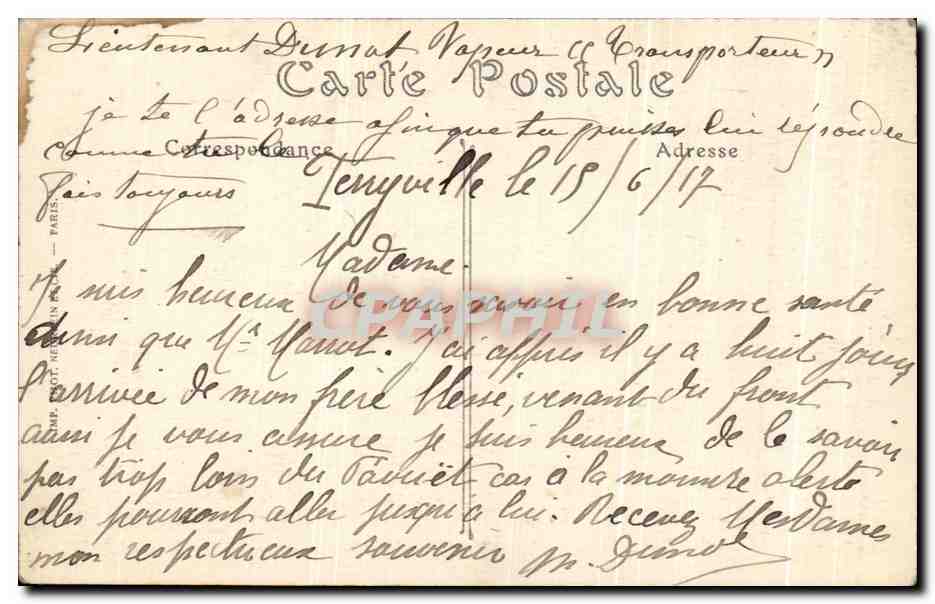 Lieutenant Dunot Vapeur "Transporteur"
Carte Postale
je te l'adresse afin que tu puisses lui répondre
comme tu le
Correspondance
Adresse
fais toujours
Ferryville le 15/6/17
Madame.
J suis heureux de vous savoir en bonne santé
ainsi que Mr Marrot. J'ai appris il y a huit jours
l'arrivée de mon frère blessé, venant du front
aussi je vous assure je suis heureux de le savoir
pas trop loin du Faouët car à la moindre alerte
elles pourront aller jusqu'à lui. Recevez Mesdames
mon respectueux souvenir M. Dunot
IMP. PHOT. NEURDEIN — PARIS.
CPAPHIL